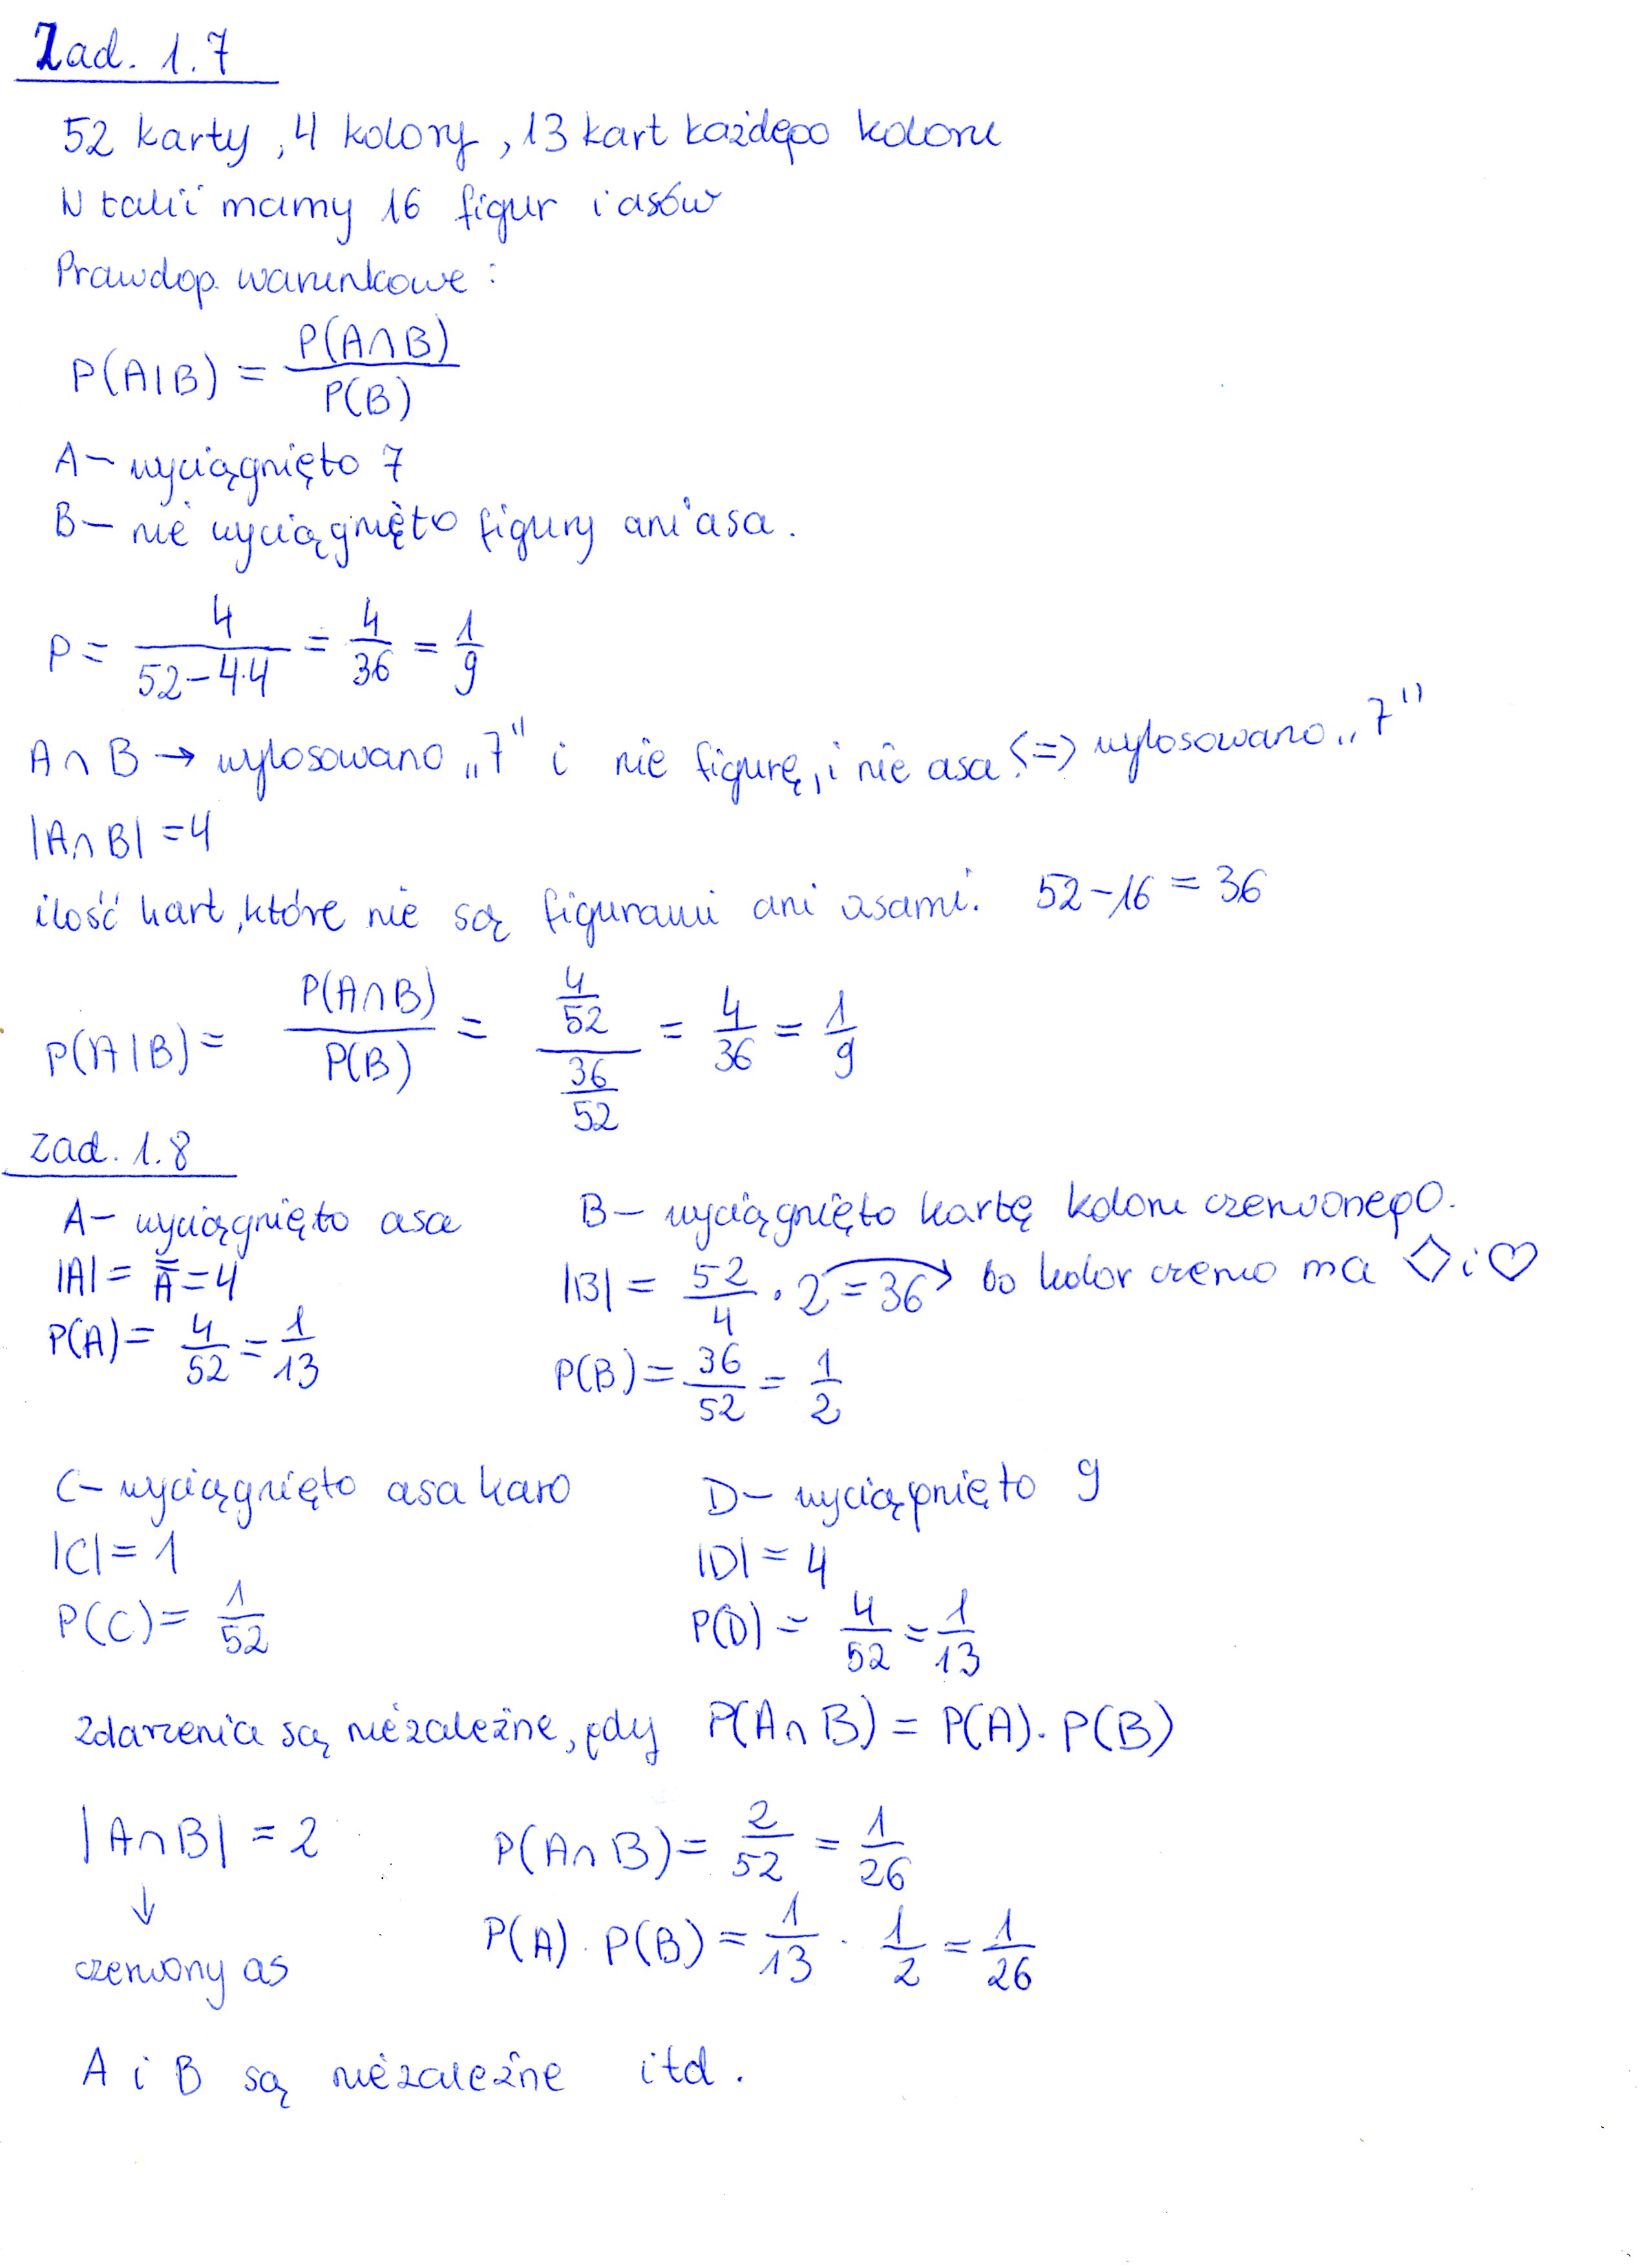 Zad. 1.7
52 karty, 4 kolory, 13 kart każdego koloru
W talii mamy 16 figur i asów
Prawdop. warunkowe:
P(A|B) = P(A∩B) / P(B)
A – wyciągnięto 7
B – nie wyciągnięto figury ani asa.
P = 4 / (52-4·4) = 4/36 = 1/9
A∩B → wylosowano „7" i nie figurę, i nie asa <=> wylosowano „7"
|A∩B| = 4
ilość kart, które nie są figurami ani asami. 52-16 = 36
P(A|B) = P(A∩B) / P(B) = (4/52) / (36/52) = 4/36 = 1/9
Zad. 1.8
A – wyciągnięto asa B – wyciągnięto kartę koloru czerwonego.
|A| = A̿ = 4 |B| = 52/4 · 2 = 36 → bo kolor czerwo ma ♢ i ♡
P(A) = 4/52 = 1/13 P(B) = 36/52 = 1/2
C – wyciągnięto asa karo D – wyciągnięto 9
|C| = 1 |D| = 4
P(C) = 1/52 P(D) = 4/52 = 1/13
Zdarzenia są niezależne, gdy P(A∩B) = P(A) · P(B)
|A∩B| = 2 P(A∩B) = 2/52 = 1/26
↓
czerwony as P(A) · P(B) = 1/13 · 1/2 = 1/26
A i B są niezależne itd.